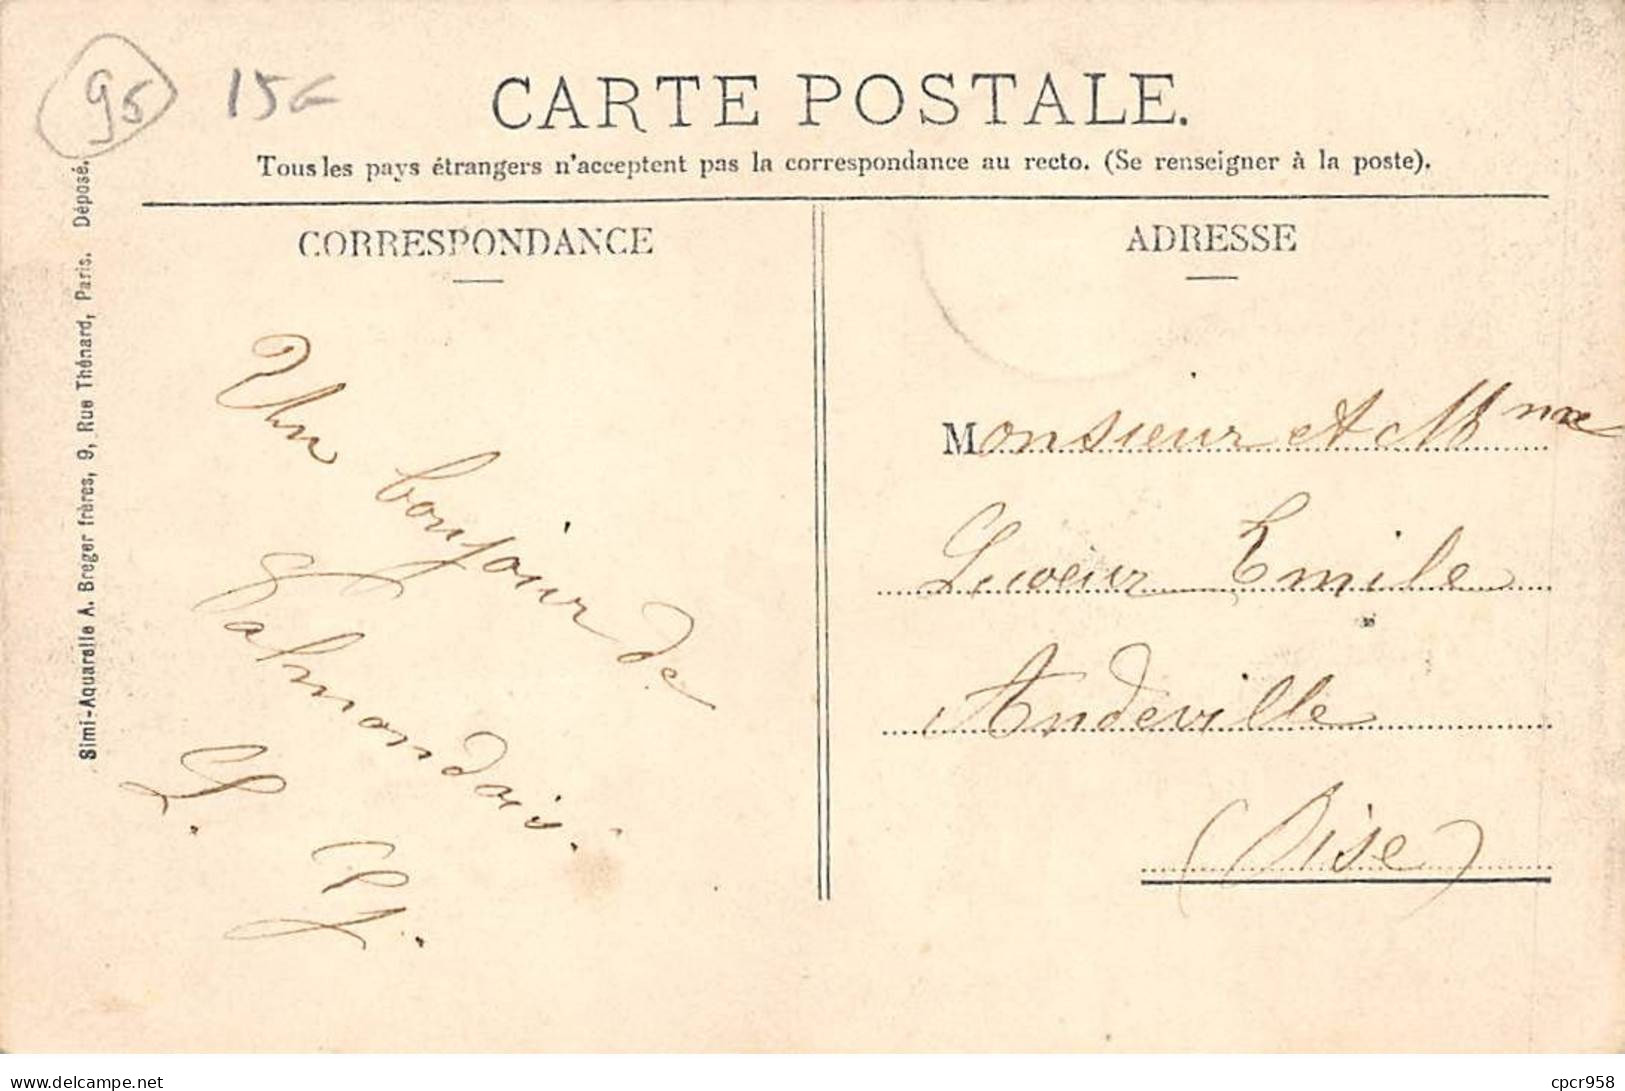 95 15€
CARTE POSTALE.
Tous les pays étrangers n'acceptent pas la correspondance au recto. (Se renseigner à la poste).
Simi-Aquarelle A. Breger frères, 9, Rue Thénard, Paris. Déposé.
CORRESPONDANCE
Un bonjour de
Valmondois.
L.
ADRESSE
Monsieur et Mme
Lecoeur Emile
Andeville
(Oise)
delcampe.net
cpcr958